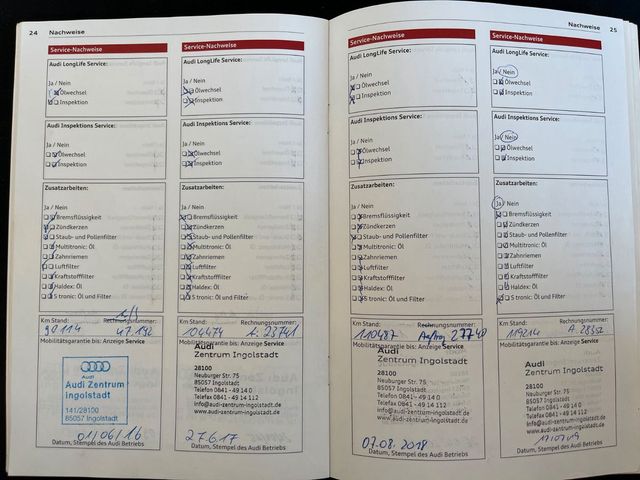 24 Nachweise
Service-Nachweise
Audi LongLife Service:
Ja / Nein
Ölwechsel
Inspektion
Audi Inspektions Service:
Ja / Nein
Ölwechsel
Inspektion
Zusatzarbeiten:
Ja / Nein
Bremsflüssigkeit
Zündkerzen
Staub- und Pollenfilter
Multitronic: Öl
Zahnriemen
Luftfilter
Kraftstofffilter
Haldex: Öl
S tronic: Öl und Filter
Km Stand: Rechnungsnummer:
90114 47.192
Mobilitätsgarantie bis: Anzeige Service
Audi
Audi Zentrum
Ingolstadt
141/28100
85057 Ingolstadt
01/06/16
Datum, Stempel des Audi Betriebs
Service-Nachweise
Audi LongLife Service:
Ja / Nein
Ölwechsel
Inspektion
Audi Inspektions Service:
Ja / Nein
Ölwechsel
Inspektion
Zusatzarbeiten:
Ja / Nein
Bremsflüssigkeit
Zündkerzen
Staub- und Pollenfilter
Multitronic: Öl
Zahnriemen
Luftfilter
Kraftstofffilter
Haldex: Öl
S tronic: Öl und Filter
Km Stand: Rechnungsnummer:
104474
Mobilitätsgarantie bis: Anzeige Service
Audi
Zentrum Ingolstadt
28100
Neuburger Str. 75
85057 Ingolstadt
Telefon 0841 - 49 14 0
Telefax 0841 - 49 14 112
info@audi-zentrum-ingolstadt.de
www.audi-zentrum-ingolstadt.de
27.6.17
Datum, Stempel des Audi Betriebs
Nachweise 25
Service-Nachweise
Audi LongLife Service:
Ja / Nein
Ölwechsel
Inspektion
Audi Inspektions Service:
Ja / Nein
Ölwechsel
Inspektion
Zusatzarbeiten:
Ja / Nein
Bremsflüssigkeit
Zündkerzen
Staub- und Pollenfilter
Multitronic: Öl
Zahnriemen
Luftfilter
Kraftstofffilter
Haldex: Öl
S tronic: Öl und Filter
Km Stand: Rechnungsnummer:
110487 Auftrag 27740
Mobilitätsgarantie bis: Anzeige Service
Audi
Zentrum Ingolstadt
28100
Neuburger Str. 75
85057 Ingolstadt
Telefon 0841 - 49 14 0
Telefax 0841 - 49 14 112
info@audi-zentrum-ingolstadt.de
www.audi-zentrum-ingolstadt.de
07.08.2018
Datum, Stempel des Audi Betriebs
Service-Nachweise
Audi LongLife Service:
Ja / Nein
Ölwechsel
Inspektion
Audi Inspektions Service:
Ja / Nein
Ölwechsel
Inspektion
Zusatzarbeiten:
Ja / Nein
Bremsflüssigkeit
Zündkerzen
Staub- und Pollenfilter
Multitronic: Öl
Zahnriemen
Luftfilter
Kraftstofffilter
Haldex: Öl
S tronic: Öl und Filter
Km Stand: Rechnungsnummer:
119214
Mobilitätsgarantie bis: Anzeige Service
Audi
Zentrum Ingolstadt
28100
Neuburger Str. 75
85057 Ingolstadt
Telefon 0841 - 49 14 0
Telefax 0841 - 49 14 112
info@audi-zentrum-ingolstadt.de
www.audi-zentrum-ingolstadt.de
Datum, Stempel des Audi Betriebs